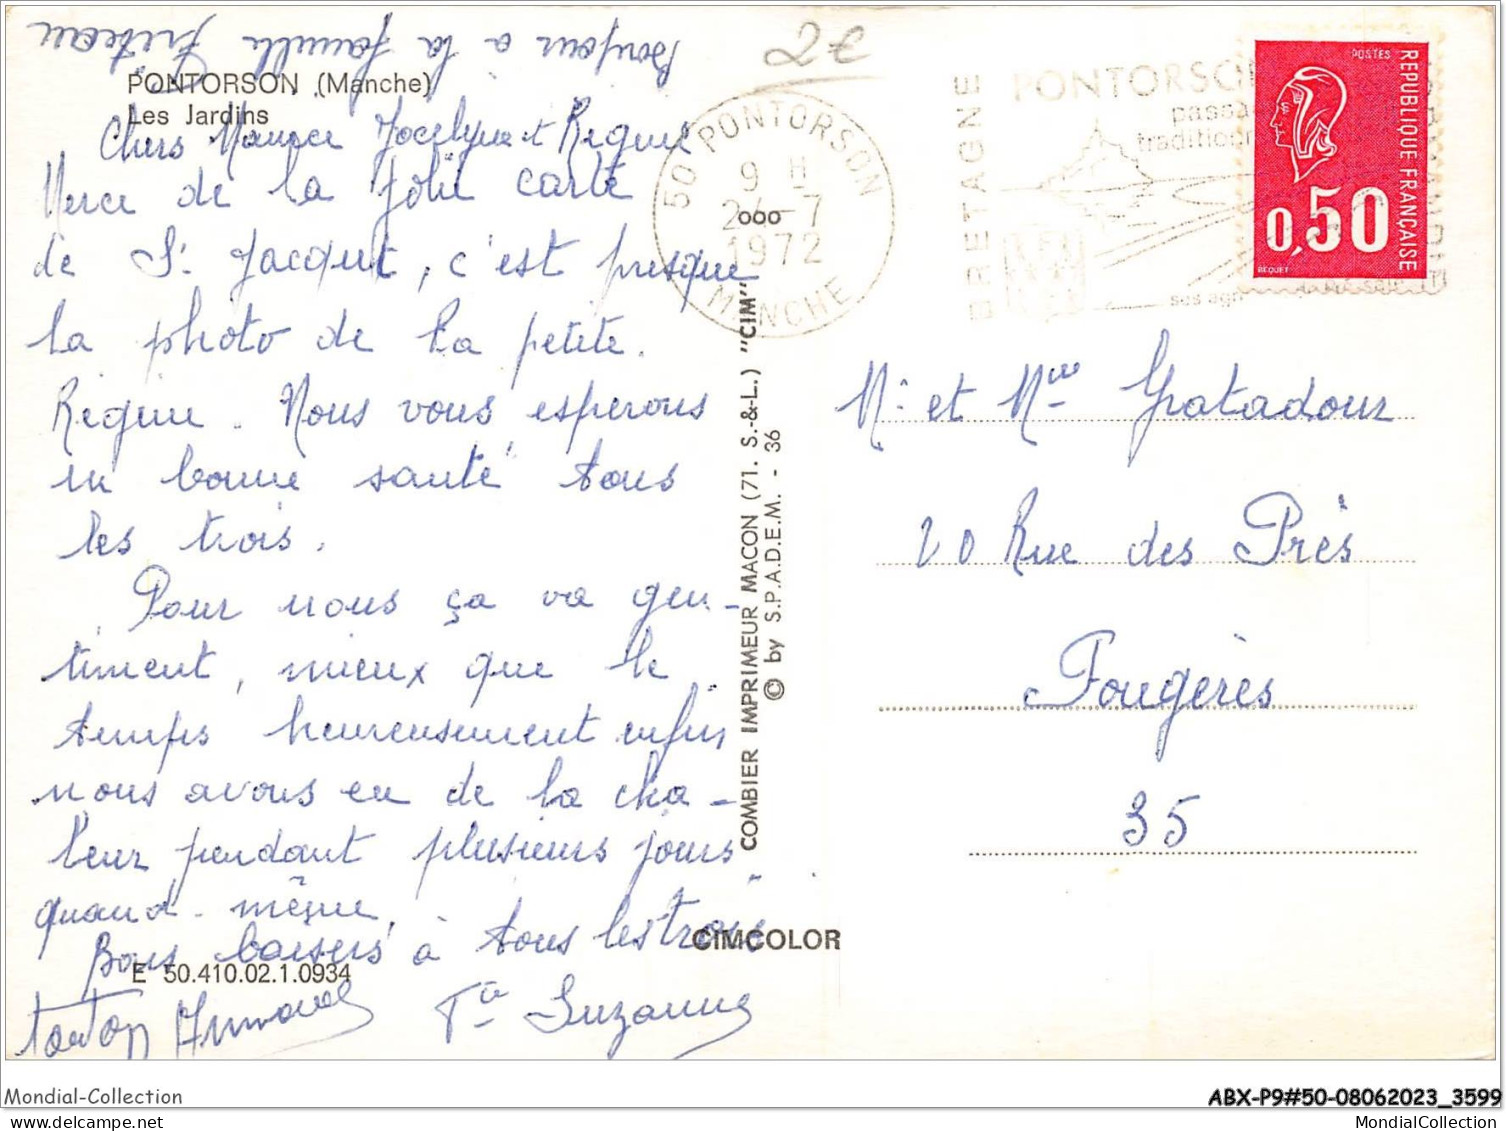 Bonjour à la famille
PONTORSON (Manche)
Les Jardins
Chers Maurice Jocelyne et Régine
Merci de la jolie carte
de St Jacques, c'est presque
la photo de la petite
Régine. Nous vous espérons
en bonne santé tous
les trois.
Pour nous ça va gen-
timent, mieux que le
temps heureusement enfin
nous avons eu de la cha-
leur pendant plusieurs jours
quand-même.
Bons baisers à tous les trois
E 50.410.02.1.0934
tonton Tta Suzanne
2€
50 PONTORSON
9 H
24-7
1972
MANCHE
ooo
COMBIER IMPRIMEUR MACON (71. S.-&-L.) "CIM"
© by S.P.A.D.E.M. - 36
CIMCOLOR
BRETAGNE
PONTORSON
passa
tradition
ses agr
POSTES
REPUBLIQUE FRANÇAISE
0,50
BEQUET
Mr et Mme Gratadour
20 Rue des Près
Fougères
35
Mondial-Collection
ABX-P9#50-08062023_3599
www.delcampe.net
MondialCollection